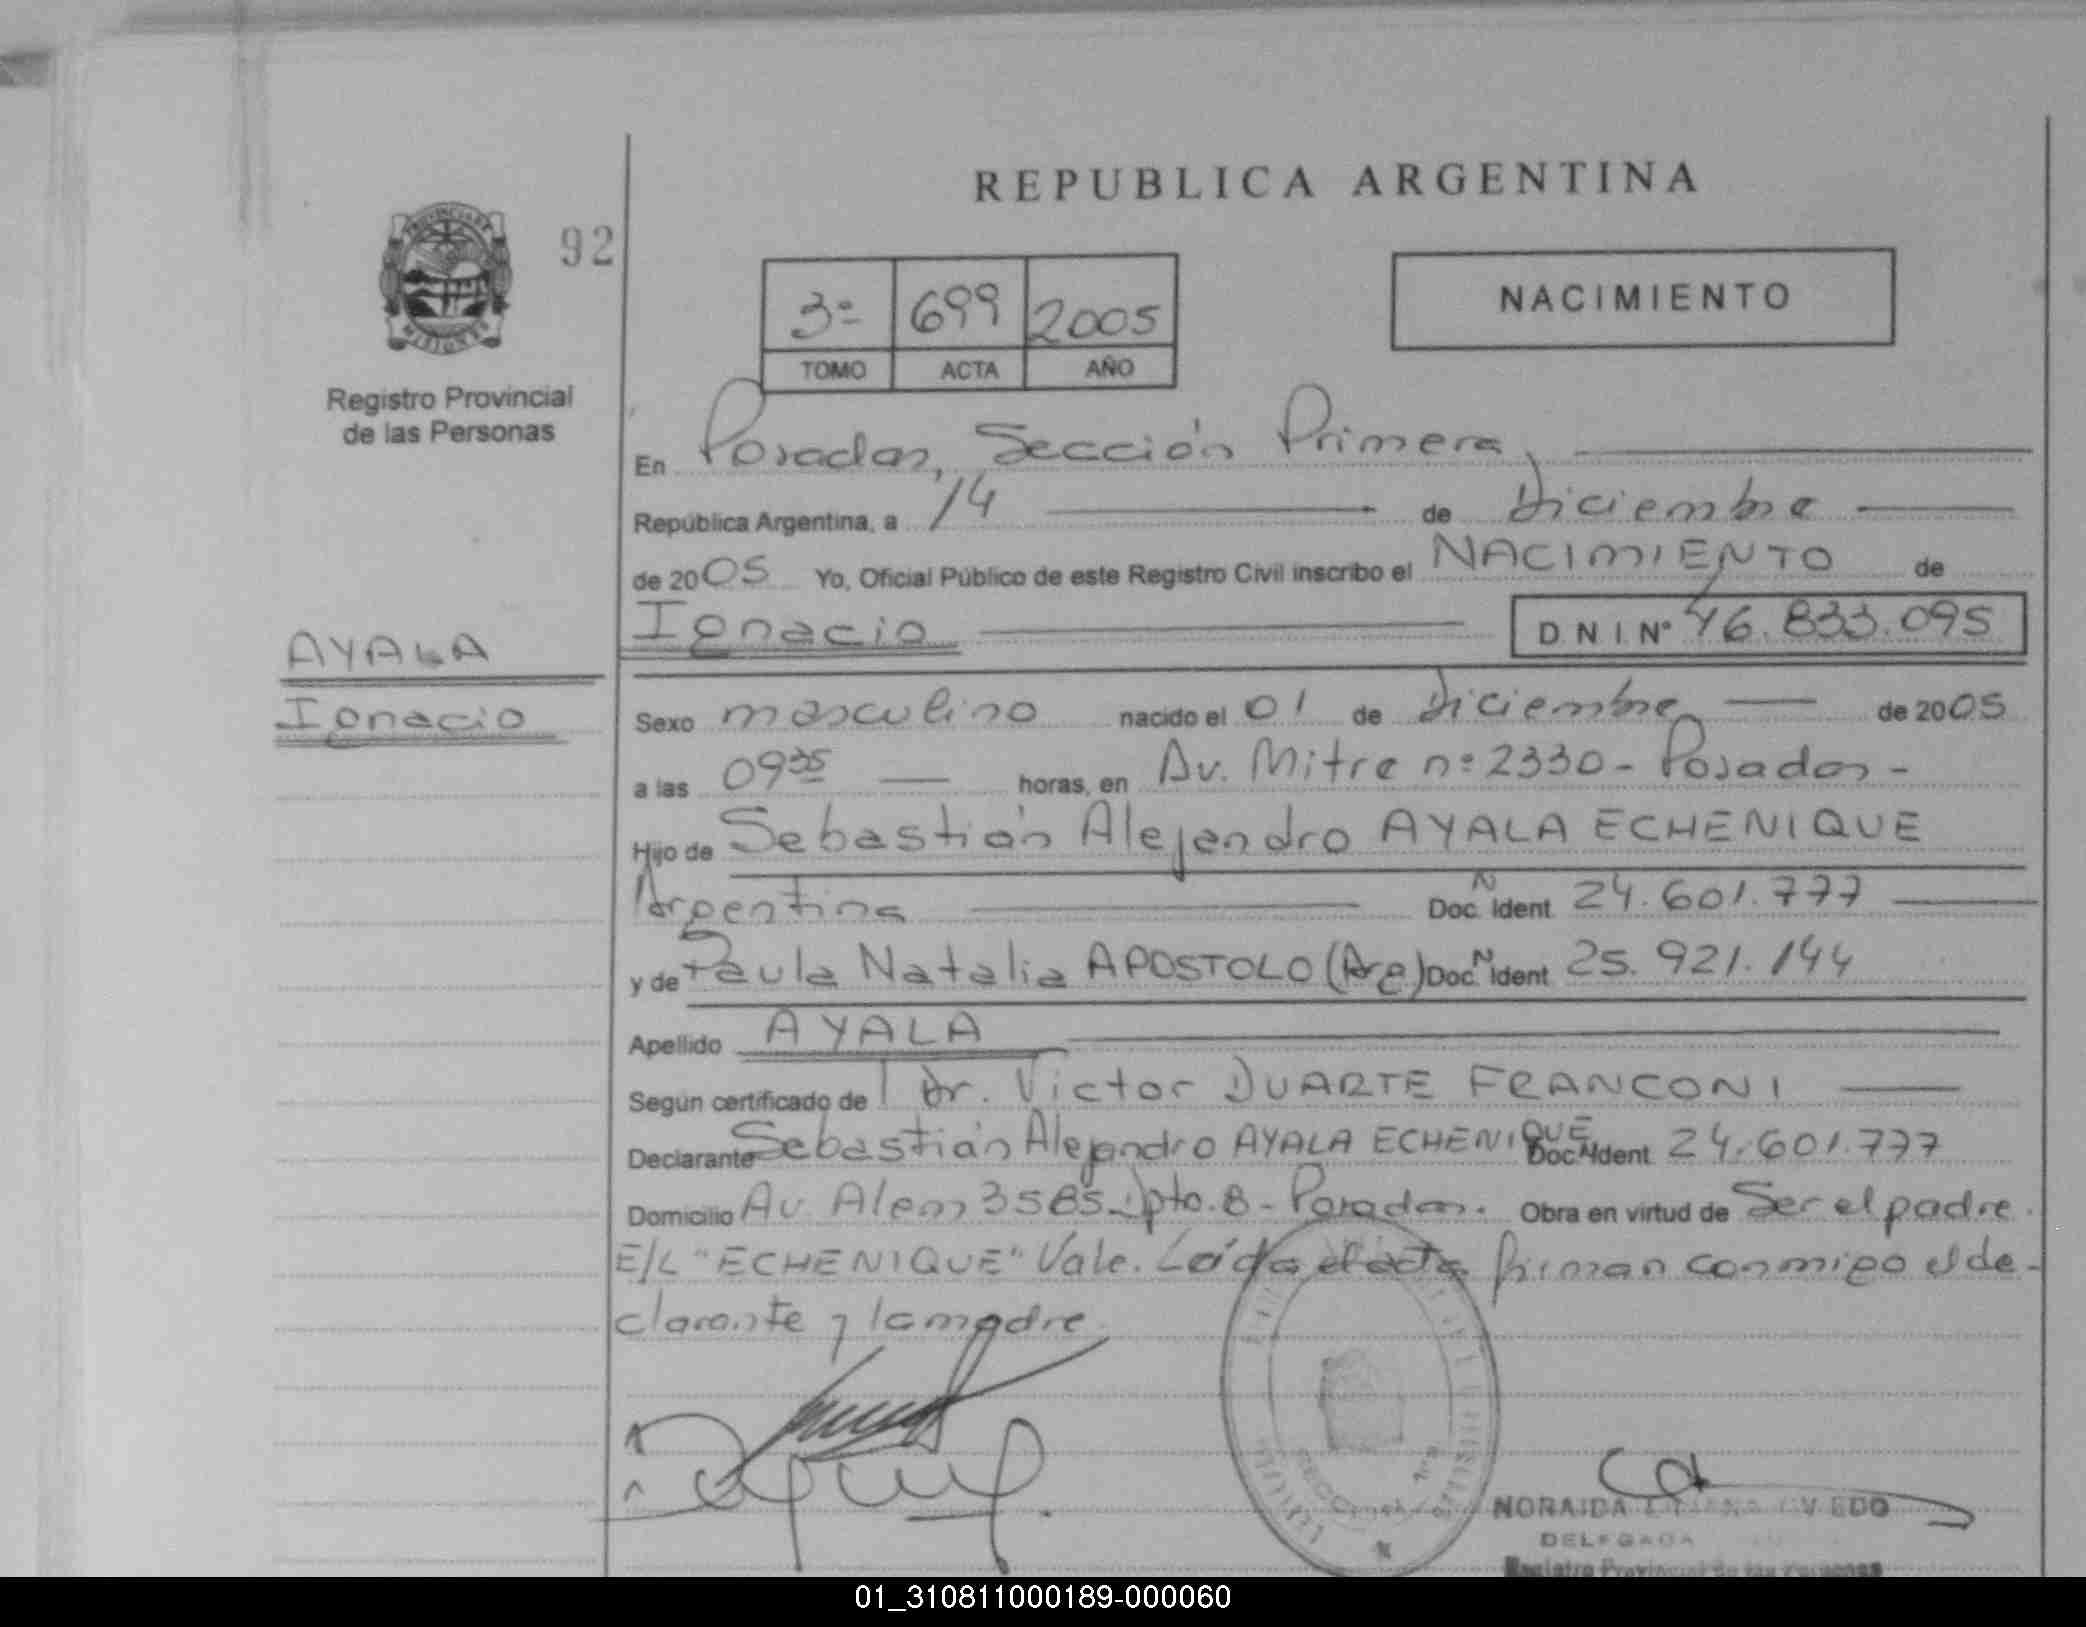 REPUBLICA ARGENTINA
PROVINCIA DE
MISIONES
92
3º 699 2005
TOMO ACTA AÑO
NACIMIENTO
Registro Provincial
de las Personas
En Posadas, Sección Primera,
República Argentina, a 14 de Diciembre
de 2005 Yo, Oficial Público de este Registro Civil inscribo el NACIMIENTO de
Ignacio D N I Nº 46.833.095
AYALA
Ignacio
Sexo masculino nacido el 01 de Diciembre de 2005
a las 09 35 horas, en Av. Mitre nº 2330 - Posadas -
Hijo de Sebastián Alejandro AYALA ECHENIQUE
Argentina Doc. N Ident 24.601.777
y de Paula Natalia APOSTOLO (Arg) Doc. N Ident 25.921.144
Apellido AYALA
Según certificado de Dr. Victor DUARTE FRANCONI
Declarante Sebastián Alejandro AYALA ECHENIQUE Doc. N Ident 24.601.777
Domicilio Av Alem 3585 Dpto. 8 - Posadas. Obra en virtud de Ser el padre.
E/L "ECHENIQUE" Vale. Leída el acta firman conmigo el de-
clarante y la madre.
NORAIDA
DELEGADA
Registro Provincial de las Personas
01_310811000189-000060